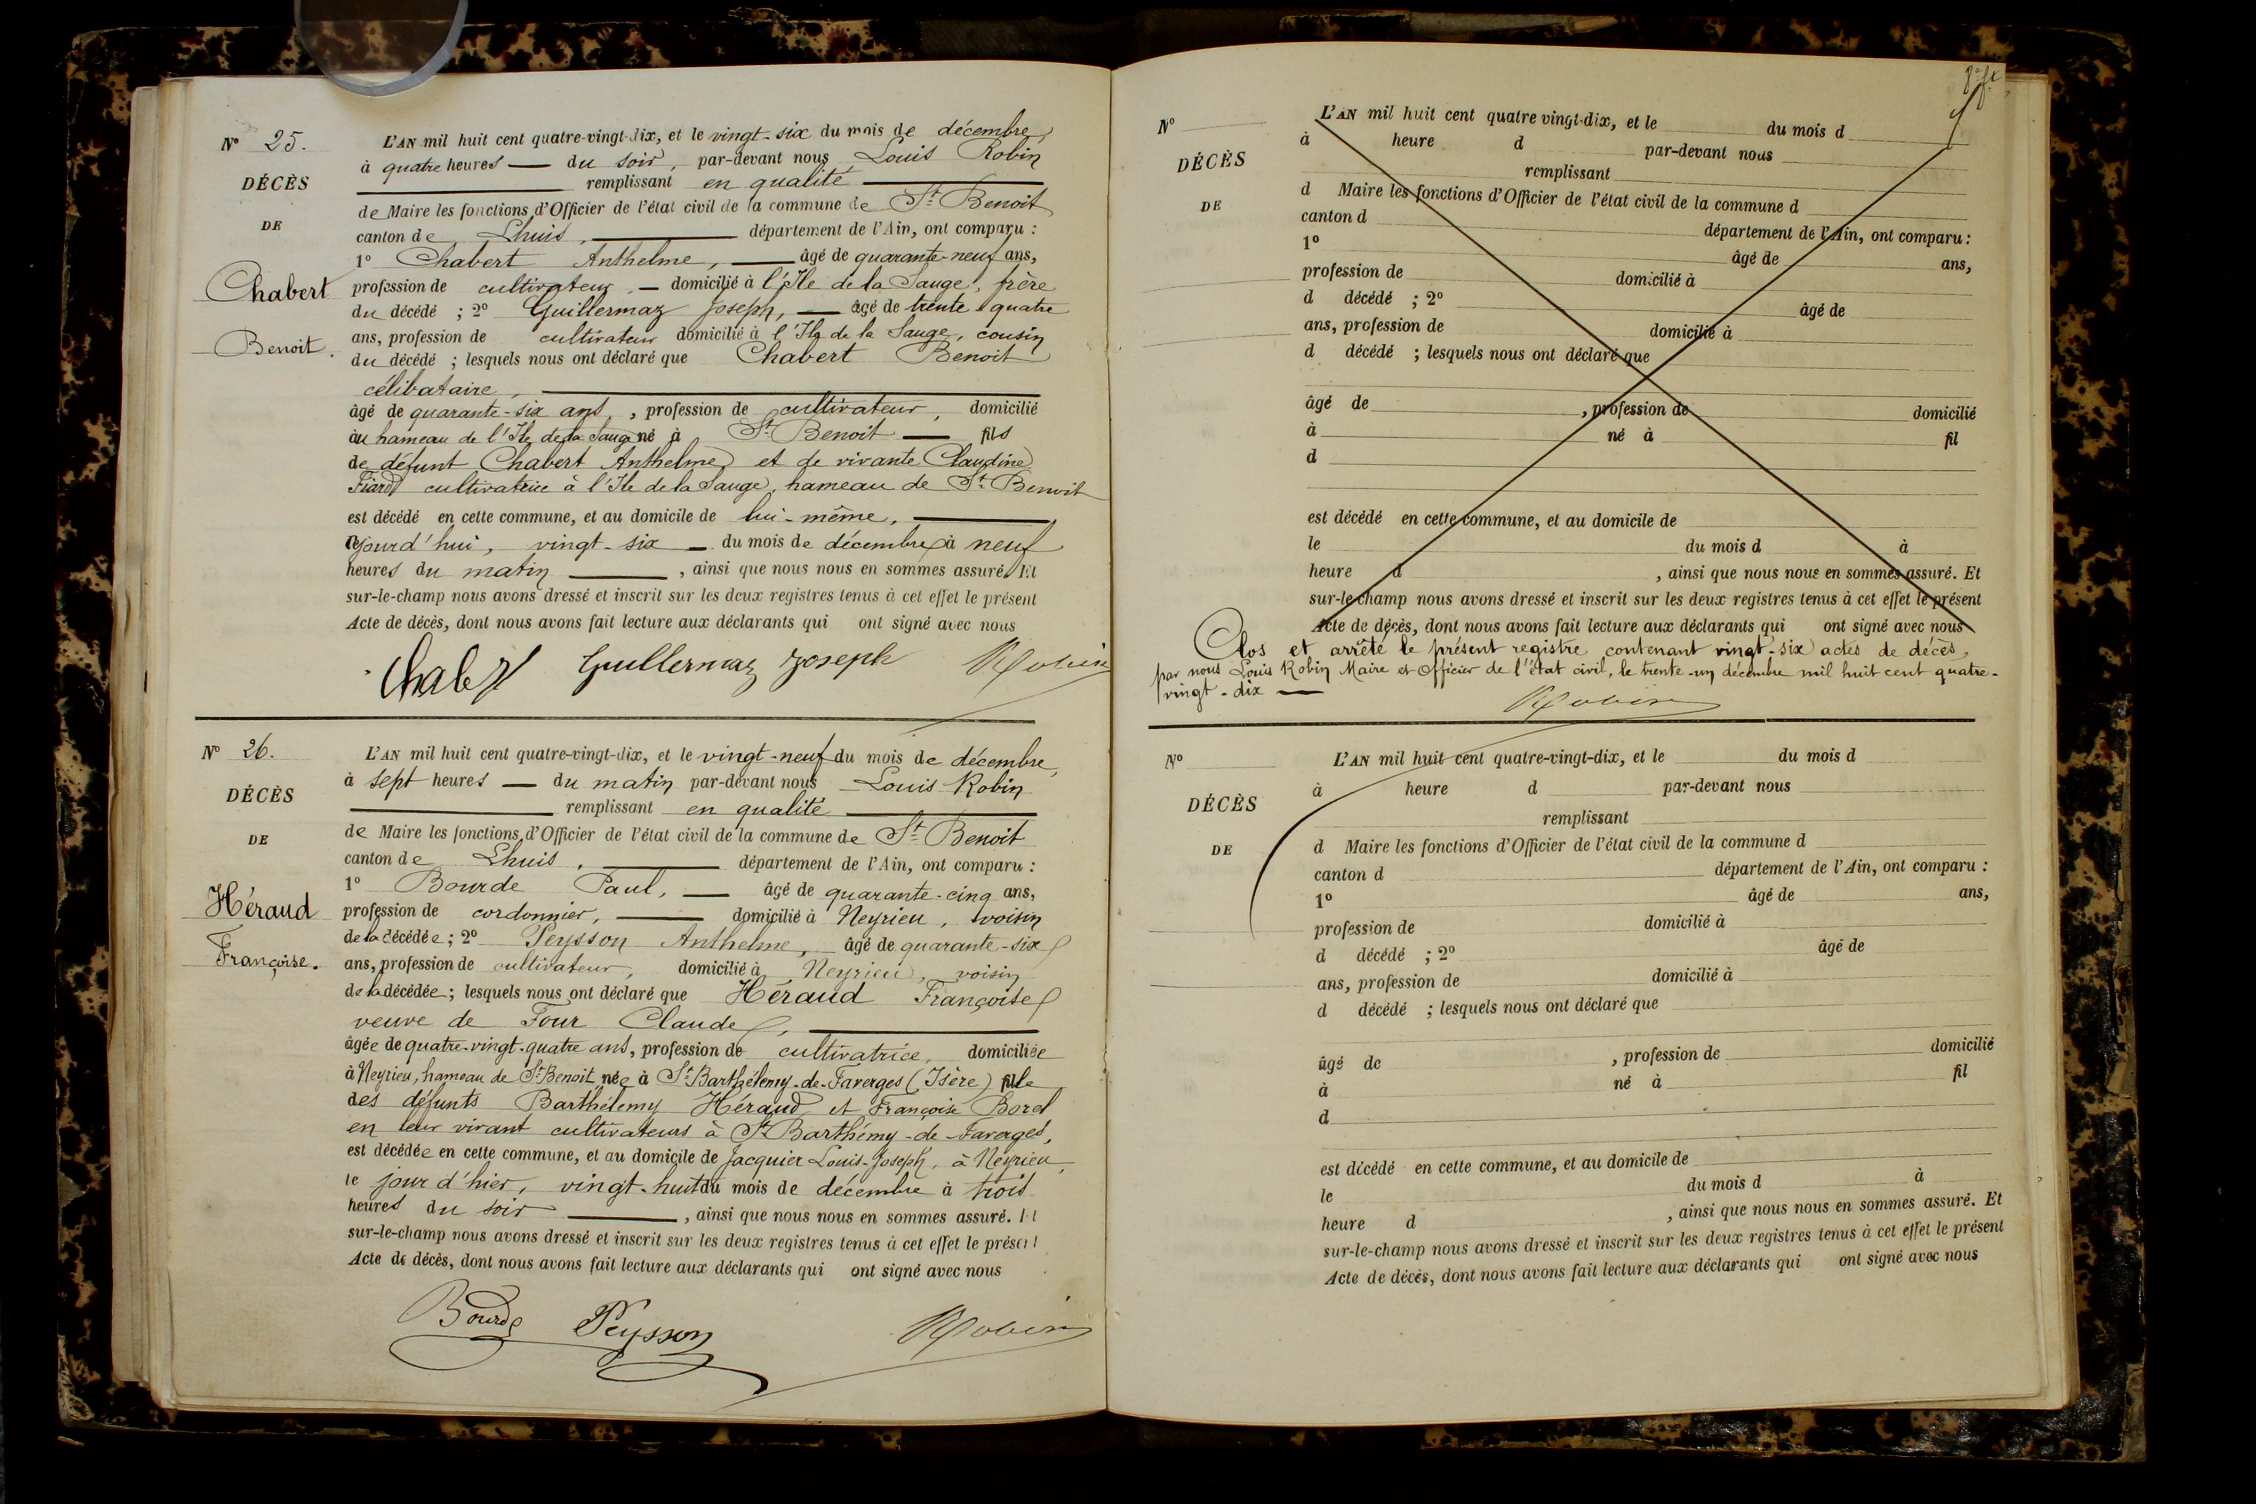 N° 25.
DÉCÈS
DE
Chabert
Benoit.
L'AN mil huit cent quatre-vingt-dix, et le vingt-six du mois de décembre,
à quatre heures — du soir, par-devant nous Louis Robin
remplissant en qualité
de Maire les fonctions d'Officier de l'état civil de la commune de St Benoit
canton de Lhuis, — département de l'Ain, ont comparu :
1° Chabert Anthelme, — âgé de quarante-neuf ans,
profession de cultivateur — domicilié à l'Ile de la Sauge, frère
du décédé ; 2° Guillermaz Joseph, — âgé de trente quatre
ans, profession de cultivateur domicilié à l'Ile de la Sauge, cousin
du décédé ; lesquels nous ont déclaré que Chabert Benoit
célibataire,
âgé de quarante-six ans, , profession de cultivateur, domicilié
au hameau de l'Ile de la Sauge né à St Benoit — fils
de défunt Chabert Anthelme et de vivante Claudine
Fiard cultivatrice à l'Ile de la Sauge, hameau de St Benoit
est décédé en cette commune, et au domicile de lui-même,
cejourd'hui, vingt-six — du mois de décembre à neuf
heures du matin — , ainsi que nous nous en sommes assuré. Et
sur-le-champ nous avons dressé et inscrit sur les deux registres tenus à cet effet le présent
Acte de décès, dont nous avons fait lecture aux déclarants qui ont signé avec nous
Chabert Guillermaz Joseph Robin
N° 26.
DÉCÈS
DE
Héraud
Françoise.
L'AN mil huit cent quatre-vingt-dix, et le vingt-neuf du mois de décembre,
à sept heures — du matin par-devant nous Louis Robin
remplissant en qualité
de Maire les fonctions d'Officier de l'état civil de la commune de St Benoit
canton de Lhuis. — département de l'Ain, ont comparu :
1° Bourde Paul, — âgé de quarante-cinq ans,
profession de cordonnier, — domicilié à Neyrieu, voisin
de la décédée ; 2° Peysson Anthelme, âgé de quarante-six
ans, profession de cultivateur, domicilié à Neyrieu, voisin
de la décédée ; lesquels nous ont déclaré que Héraud Françoise
veuve de Four Claude,
âgée de quatre-vingt-quatre ans, profession de cultivatrice, domiciliée
à Neyrieu, hameau de St Benoit, née à St Barthélemy-de-Faverges (Isère) fille
des défunts Barthélemy Héraud et Françoise Borel
en leur vivant cultivateurs à St Barthémy-de-Faverges,
est décédée en cette commune, et au domicile de Jacquier Louis-Joseph, à Neyrieu,
le jour d'hier, vingt-huit du mois de décembre à trois
heures du soir — , ainsi que nous nous en sommes assuré. Et
sur-le-champ nous avons dressé et inscrit sur les deux registres tenus à cet effet le présent
Acte de décès, dont nous avons fait lecture aux déclarants qui ont signé avec nous
Bourde Peysson Robin
N°
DÉCÈS
DE
L'AN mil huit cent quatre vingt-dix, et le du mois d
à heure d par-devant nous
remplissant
d Maire les fonctions d'Officier de l'état civil de la commune d
canton d département de l'Ain, ont comparu :
1° âgé de ans,
profession de domicilié à
d décédé ; 2° âgé de
ans, profession de domicilié à
d décédé ; lesquels nous ont déclaré que
âgé de , profession de domicilié
à né à fil
d
est décédé en cette commune, et au domicile de
le du mois d à
heure d , ainsi que nous nous en sommes assuré. Et
sur-le-champ nous avons dressé et inscrit sur les deux registres tenus à cet effet le présent
Acte de décès, dont nous avons fait lecture aux déclarants qui ont signé avec nous
Clos et arrêté le présent registre contenant vingt-six actes de décès,
par nous Louis Robin Maire et Officier de l'état civil, le trente-un décembre mil huit cent quatre-
vingt-dix —
Robin
N°
DÉCÈS
DE
L'AN mil huit cent quatre-vingt-dix, et le du mois d
à heure d par-devant nous
remplissant
d Maire les fonctions d'Officier de l'état civil de la commune d
canton d département de l'Ain, ont comparu :
1° âgé de ans,
profession de domicilié à
d décédé ; 2° âgé de
ans, profession de domicilié à
d décédé ; lesquels nous ont déclaré que
âgé de , profession de domicilié
à né à fil
d
est décédé en cette commune, et au domicile de
le du mois d à
heure d , ainsi que nous nous en sommes assuré. Et
sur-le-champ nous avons dressé et inscrit sur les deux registres tenus à cet effet le présent
Acte de décès, dont nous avons fait lecture aux déclarants qui ont signé avec nous